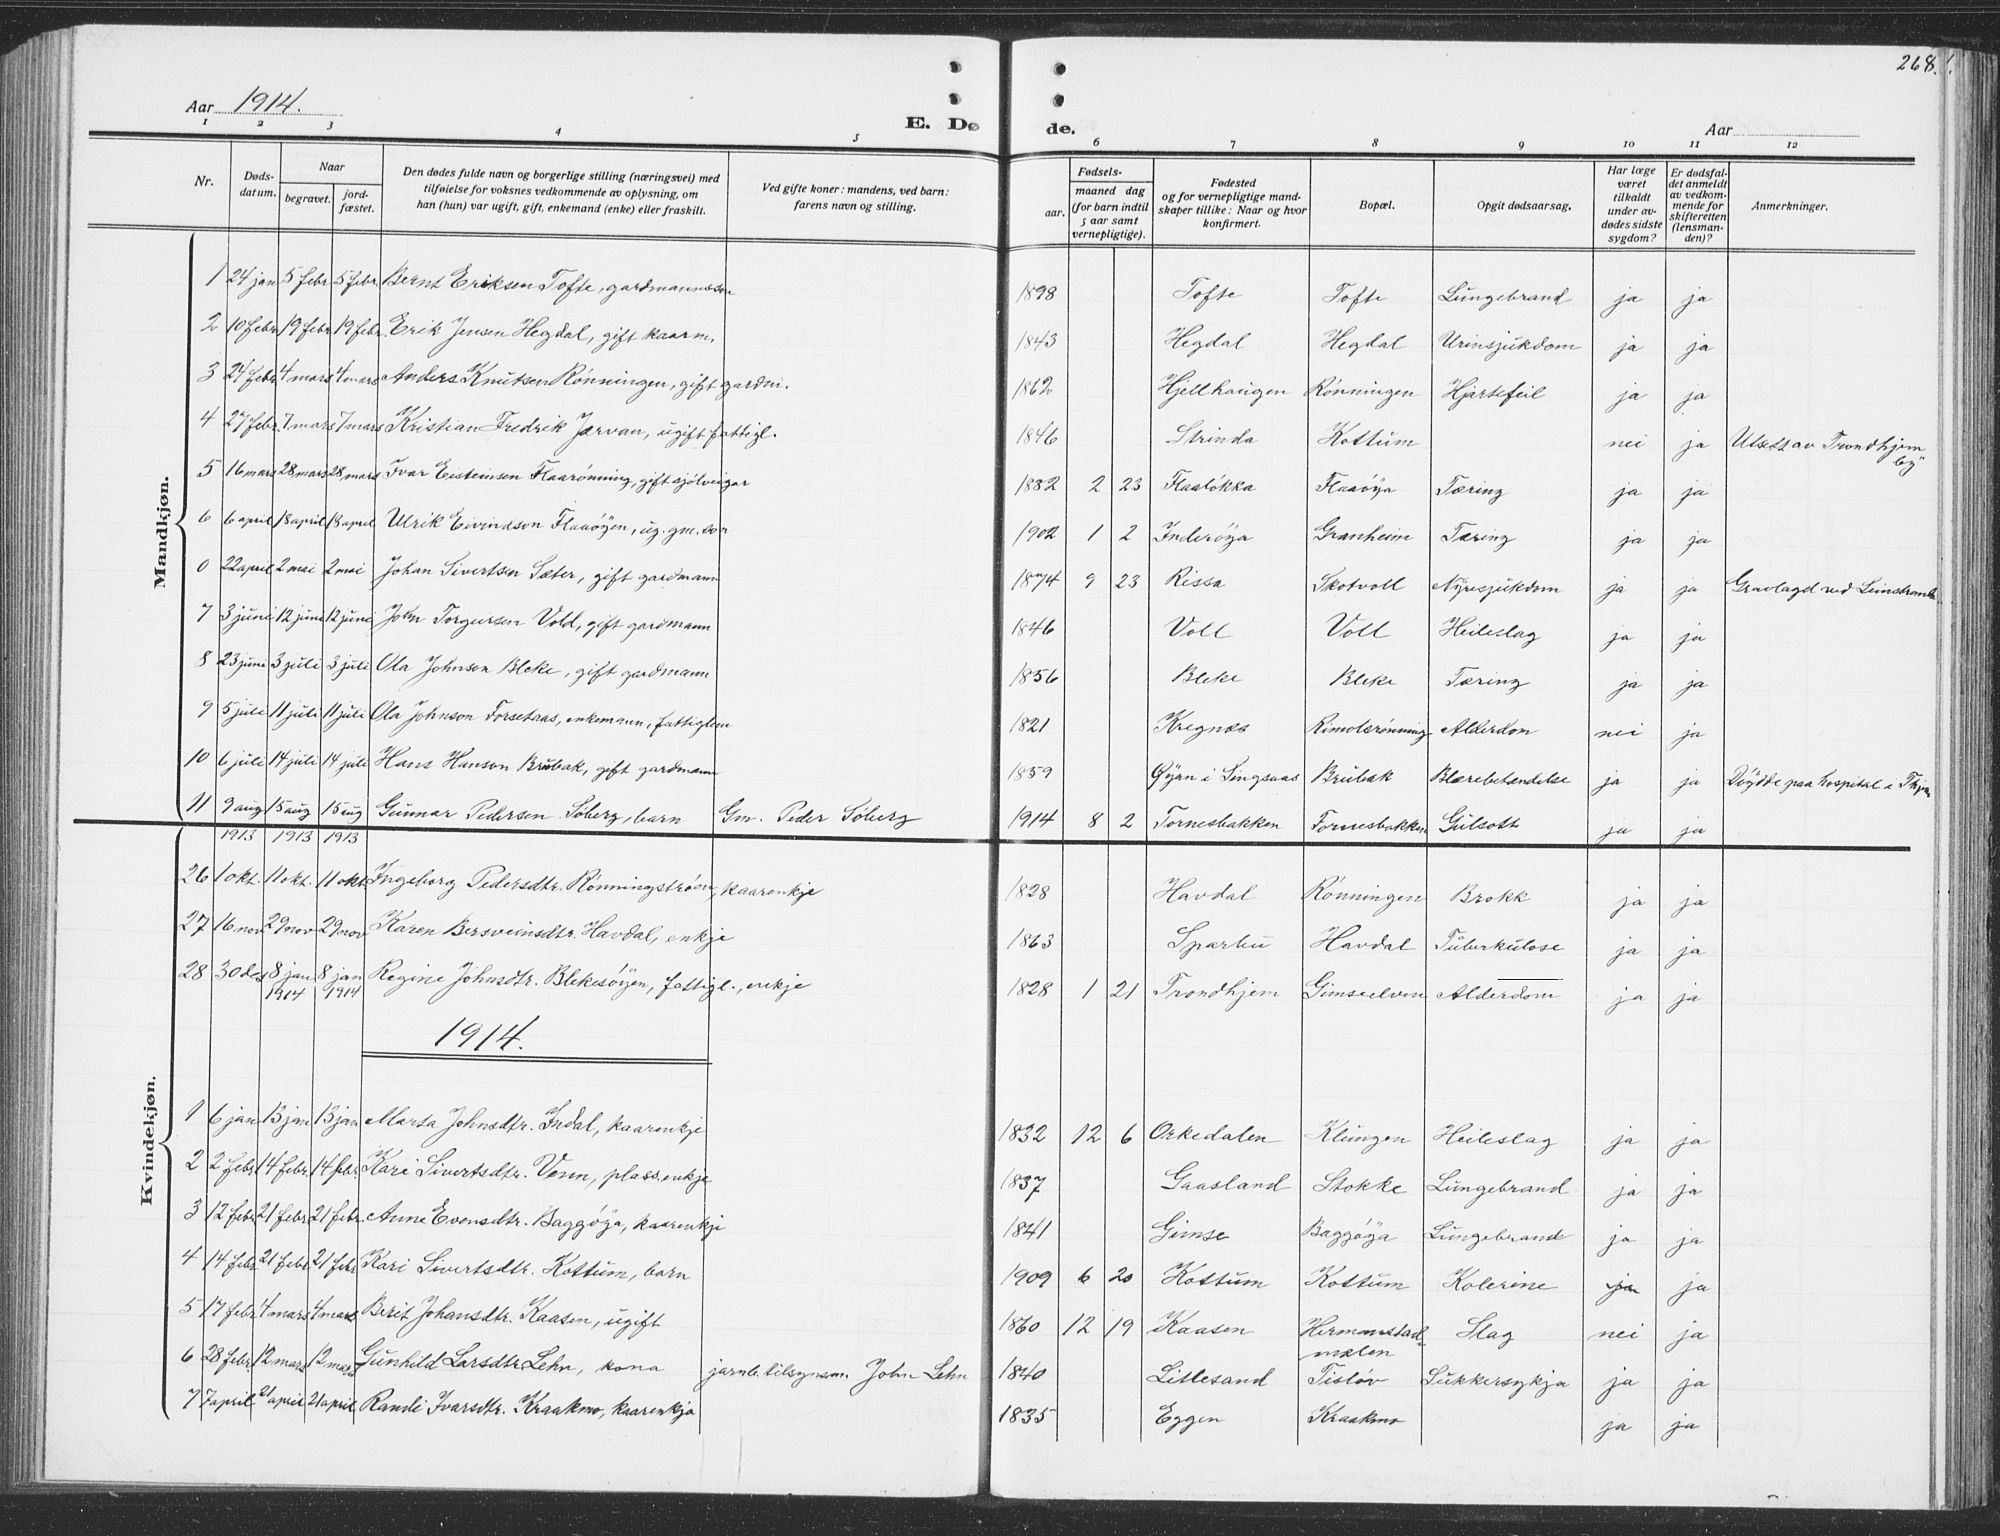 268.
Aar 1914.
E. Døde.
Aar
1 2 3 4 5 6 7 8 9 10 11 12
Nr.
Døds-datum.
Naar
begravet.
jord-fæstet.
Den dødes fulde navn og borgerlige stilling (næringsvei) med
tilføielse for voksnes vedkommende av oplysning, om
han (hun) var ugift, gift, enkemand (enke) eller fraskilt.
Ved gifte koner: mandens, ved barn:
farens navn og stilling.
Fødsels-
aar.
maaned dag
(for barn indtil
5 aar samt
vernepligtige).
Fødested
og for vernepligtige mand-
skaper tillike: Naar og hvor
konfirmert.
Bopæl.
Opgit dødsaarsag.
Har læge
været
tilkaldt
under av-
dødes sidste
sygdom?
Er dødsfal-
det anmeldt
av vedkom-
mende for
skifteretten
(lensman-
den)?
Anmerkninger.
Mandkjøn.
1 24 jan 5 febr 5 febr Bernt Eriksen Tofte, gardmannsson 1898 Tofte Tofte Lungebrand ja ja
2 10 febr 19 febr 19 febr Erik Jensen Hegdal, gift kaarm. 1843 Hegdal Hegdal Urinsjukdom ja ja
3 24 febr 4 mars 4 mars Anders Knutsen Rønningen, gift gardm. 1862 Hjellhaugen Rønningen Hjartefeil ja ja
4 27 febr 7 mars 7 mars Kristian Fredrik Jærvan, ugift fattigl. 1846 Strinda Kottum nei ja Utsett av Trondhjem by"
5 16 mars 28 mars 28 mars Ivar Eisteinsen Flaarønning, gift sjølveigar 1882 2 23 Flaaløkka Flaaøya Tæring ja ja
6 6 april 18 april 18 april Ulrik Eivindson Flaaøyen, ug. gm. son 1902 1 2 Inderøya Granheim Tæring ja ja
0 22 april 2 mai 2 mai Johan Sivertsen Sæter, gift gardmann 1874 9 23 Rissa Skotvoll Nyresjukdom ja ja Gravlagd ved Leinstrand
7 3 juni 12 juni 12 juni John Torgersen Vold, gift gardmann 1846 Voll Voll Heileslag ja ja
8 23 juni 3 juli 3 juli Ola Johnson Bleke, gift gardmann 1856 Bleke Bleke Tæring ja ja
9 5 juli 11 juli 11 juli Ola Johnson Forsetaas, enkemann, fattiglem 1821 Kregnes Rimolsrønning Alderdom nei ja
10 6 juli 14 juli 14 juli Hans Hanson Brubak, gift gardmann 1859 Øyan i Singsaas Brubak Blærebetændelse ja ja Døydde paa hospital i Thjem
11 9 aug 15 aug 15 aug Gunnar Pedersen Søberg, barn Gm. Peder Søberg 1914 8 2 Fornesbakken Fornesbakken Gulsott ja ja
Kvindekjøn.
1913 1913 1913
26 1 okt. 11 okt. 11 okt Ingeborg Pedersdtr. Rønningstrøen, kaarenkje 1828 Havdal Rønningen Brokk ja ja
27 16 nov 29 nov 29 nov Karen Bersveinsdtr. Havdal, enkje 1863 Sparbu Havdal Tuberkulose ja ja
28 30 des 8 jan 1914 8 jan 1914 Regine Johnsdtr. Blekesøyen, fattigl., enkje 1828 1 21 Trondhjem Gimseelven Alderdom ja ja
1914.
1 6 jan 13 jan 13 jan Marta Johnsdtr. Indal, kaarenkje 1832 12 6 Orkedalen Klungen Heileslag ja ja
2 2 febr 14 febr. 14 febr. Kari Sivertsdtr. Venn, plass.enkje 1837 Gaasland Stokke Lungebrand ja ja
3 12 febr 21 febr 21 febr. Anne Evensdtr. Baggøya, kaarenkje 1841 Gimse Baggøya Lungebrand ja ja
4 14 febr 21 febr 21 febr Kari Sivertsdtr. Kottum, barn 1909 6 20 Kottum Kottum Kolerine ja ja
5 17 febr 4 mars 4 mars Berit Johansdtr. Kaasen, ugift 1860 12 19 Kaasen Hermanstad-mælen Slag nei ja
6 28 febr. 12 mars 12 mars Gunhild Larsdtr Lehn, kona jarnb. tilsynsm. John Lehn 1840 Litlesand Tisløv Sukkersykja ja ja
7 7 april 21 april 21 april Randi Ivarsdtr. Kraakmo, kaarenkja 1835 Eggen Kraakmo ja ja